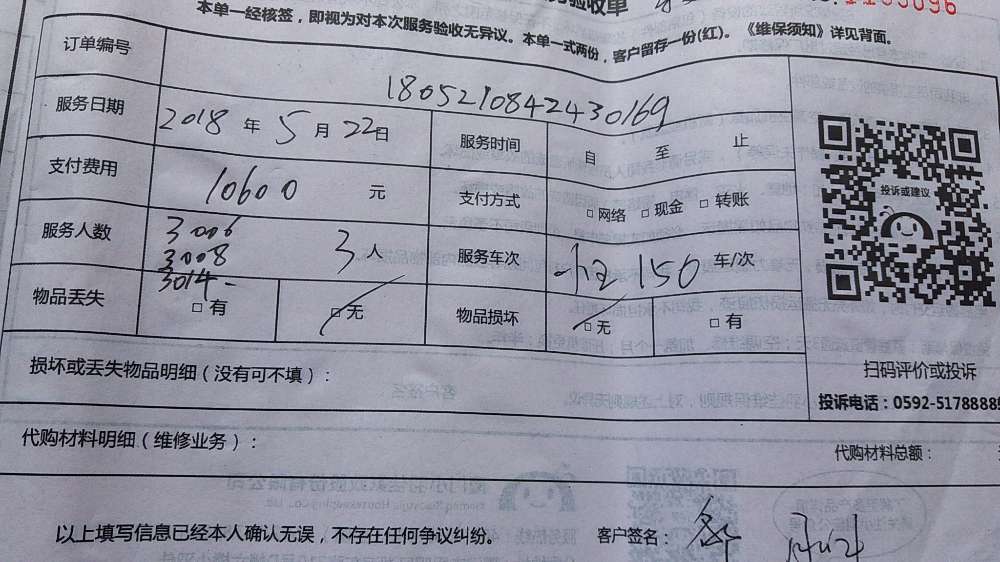 验收单
本单一经核签，即视为对本次服务验收无异议。本单一式两份，客户留存一份(红)。《维保须知》详见背面。
订单编号 180521084243 0169
服务日期 2018 年 5 月 22日 服务时间 自 至 止
支付费用 10600 元 支付方式 □网络 □现金 □转账
服务人数 3006 3人 服务车次 150 车/次
3008
3014
物品丢失 □有 □无 物品损坏 □无 □有
投诉或建议
扫码评价或投诉
投诉电话：0592-5178888
损坏或丢失物品明细（没有可不填）：
代购材料明细（维修业务）： 代购材料总额：
以上填写信息已经本人确认无误，不存在任何争议纠纷。 客户签名：